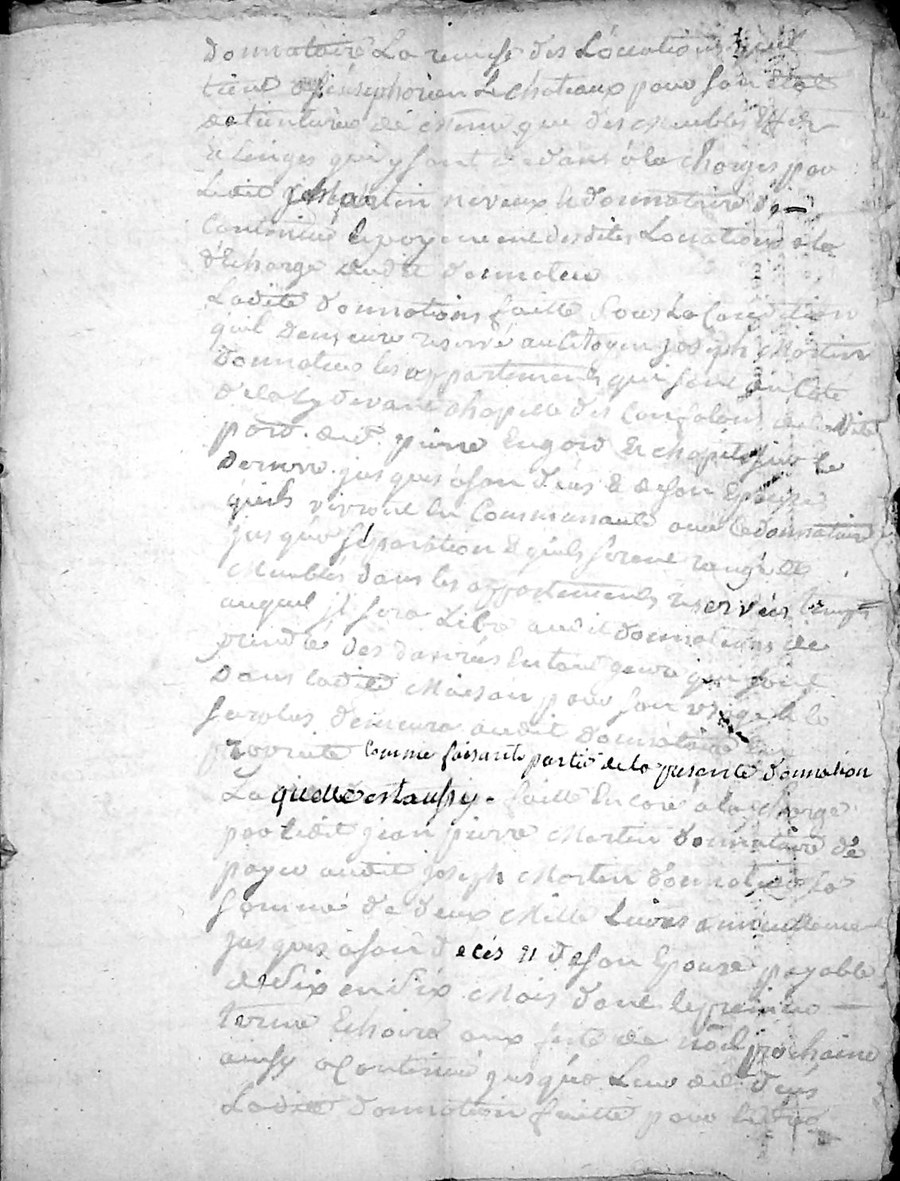 donnataire La remise des Locations quil
tient à Simphorien Le chateaux pour son état
de tenture de même que des Meubles
& Linges qui y sont dedans à la charges par
Ledit Martin neveux & donnataire de
Continué le payement desdites Locations à la
décharge dudit donnateur
Ladite donnations faitte Sous La Condition
quil demeure reservé au Citoyen joseph Martin
donnateur les appartements qui sont du Coté
de la cy devant chapelle des Confalons de la Ville
par pierre
derriere jusques à son décés & de son Epouse
quils vivront En Communauté avec le donnataire
jusqua séparation & quils seront rangé de
Meubles dans les appartements reservées temps
auquel jl sera Libre audit donnateur de
prendre des danrées En tout genre qui sont
Dans ladite Maison pour son usage & le
surplus demeura audit donnataire En
proprieté Comme faisante partie de la presente donnation
La quelle est aussy faitte Encore à la charge
par ledit jean pierre Martin donnataire de
payer audit joseph Martin donnateur La
somme de deux Mille Livres annuellement
jusques à son decés & de son Epouse payable
de Six en Six Mois dont le premier
terme Echoira aux fete de noël prochaine
ainsy a Continué jusqua Leur dit décés
Ladite donnation faitte pour